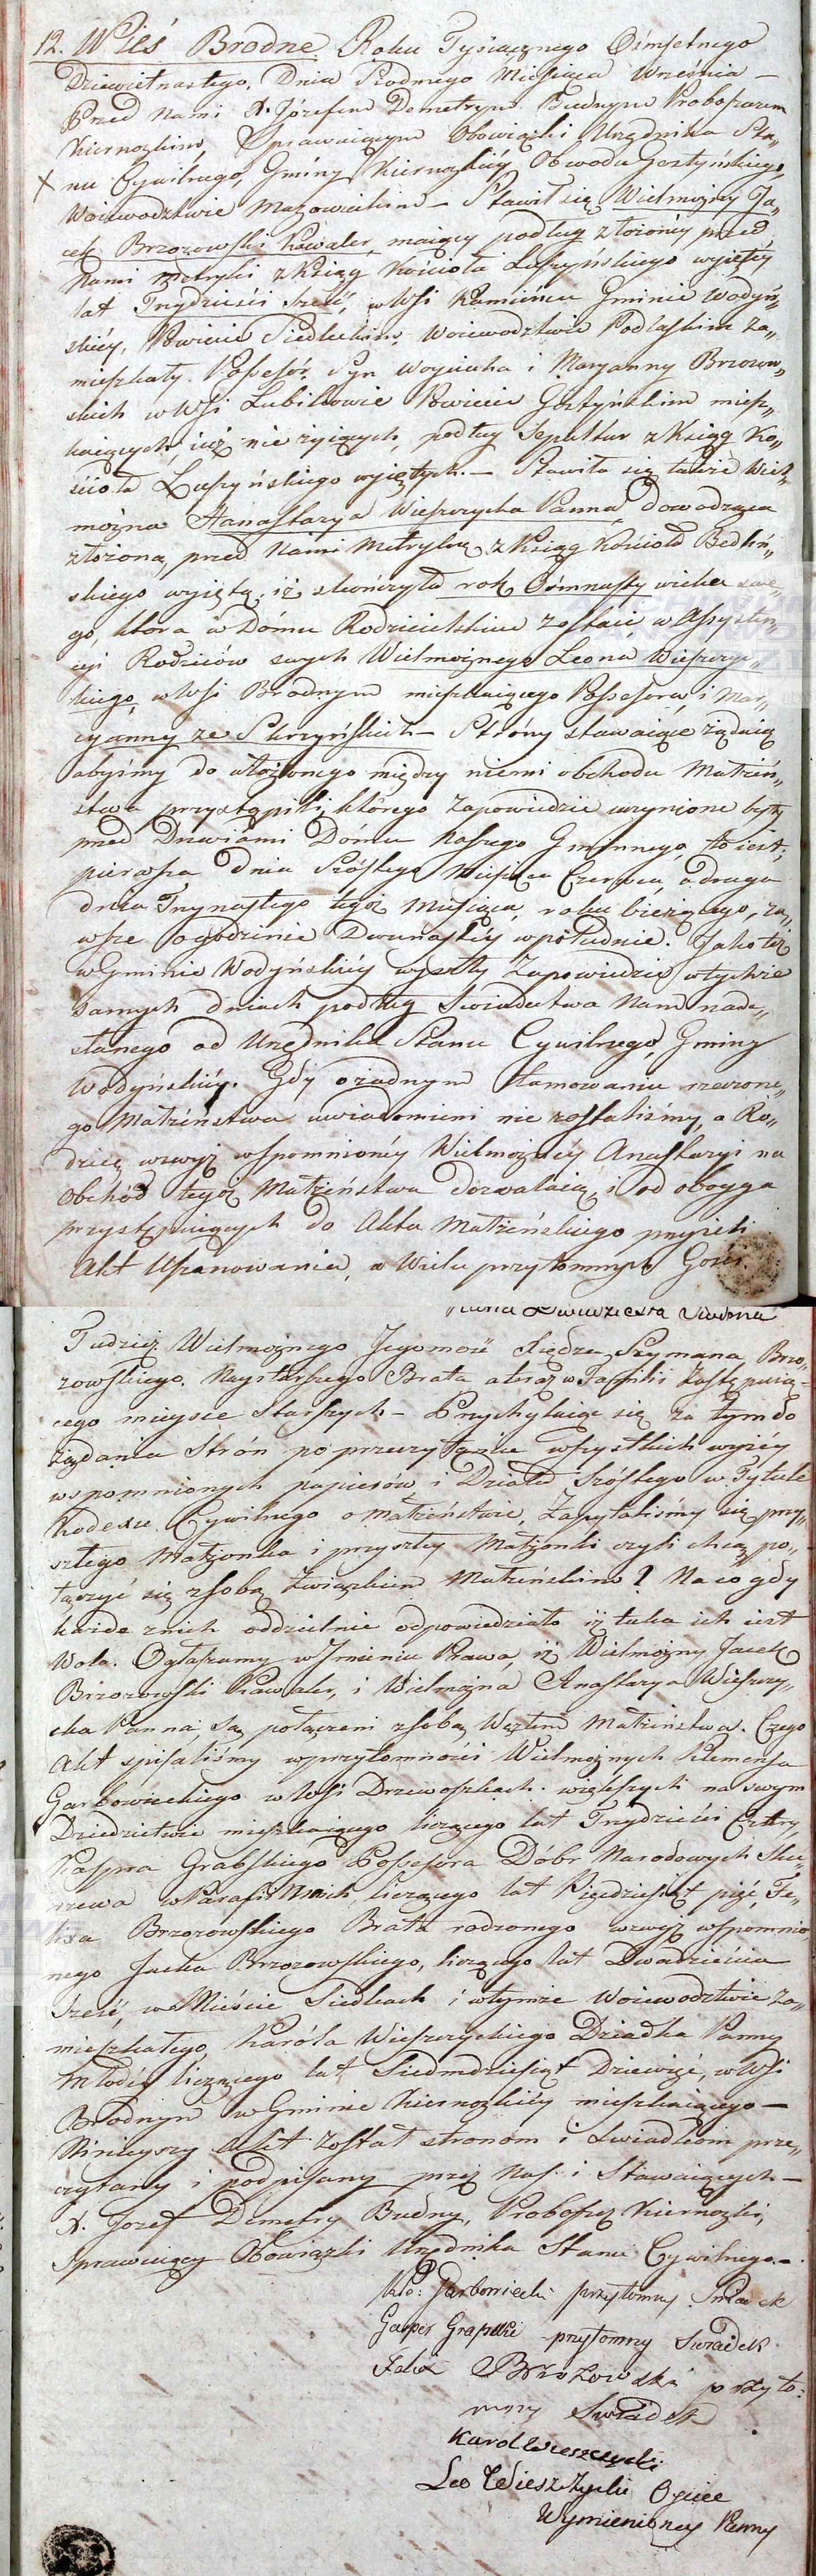 12. Wieś Brodne Roku Tysiącznego Ośmsetnego
Dziewiętnastego. Dnia Siodmego Miesiąca Września –
Przed Nami X. Józefem Demetrym Budnym Proboszczem
Kiernozkim, Sprawuiącym Obowiązki Urzędnika Sta„
nu Cywilnego, Gminy Kiernozkiéy Obwodu Gostyńskiego,
Woiewodztwie Mazowieckim – Stawił się Wielmożny Ja„
cek Brzozowski Kawaler, maiący podług złożonéy przed
Nami metryki z Xiąg Kościoła Luszyńskiego wyjętéy
lat Trzydzieści sześć, w Wsi Kamieńcu Gminie Wodyń„
skiéy, Powiecie Siedleckim, Woiewodztwie Podlaskim za„
mieszkały. Possesór, Syn Woyciecha i Maryanny Brzozow„
skich w Wsi Lubikowie Powiecie Gostyńskim miesz„
kaiących, iuż nie żyiących, podług Sepultur z Xiąg Ko„
ścioła Luszyńskiego wyjętych. – Stawiła się także Wiel„
można Hanastazya Wieszczycka Panna, dowodząca
złożoną przed Nami Metryką z Xiąg Kościoła Bedlń„
skiego wyjętą, iż skończyła rok Ośmnasty wieku swe„
go, która w Dómu Rodzicielskim zostaie, w Assysten„
cyi Rodziców swych Wielmożnego Leona Wieszczyc„
kiego, w Wsi Brodnym mieszkaiącego Possesora, i Mar„
cyanny ze Skrzyńskich – Stróny stawaiące żądaią
abyśmy do ułożonego między niemi obchodu Małżeń„
stwa przystąpili, którego Zapowiedzie uczynione były
przed Drzwiami Dómu Naszego Gminnego, to iest;
pierwsza dnia Szóstego Miesiąca Czerwca, a druga
dnia Trzynastego tegoż Miesiąca, roku bieżącego, za„
wsze o godzinie Dwunastéy w południe. Jako też
w Gminie Wodyńskiéy wyszły Zapowiedzie w tychże
samych dniach podług Swiadectwa Nam nade„
słanego od Urzędnika Stanu Cywilnego, Gminy
Wodyńskiéy. Gdy o żadnym tamowaniu rzeczone„
go Małżeństwa uwiadomieni nie zostaliśmy, a Ro„
dzice wzwyż wspomnionéy Wielmożnéy Anastazyi na
Obchód tegoż Małżeństwa dozwalaią, i od oboyga
przystępuiących do Aktu Małżeńskiego przyjeli
Akt Uszanowania, w Wielu przytomnych Gości
Tudzież Wielmożnego Jegomość Xiędza Szymana Brzo„
zowskiego. Naystarszego Brata a teraz w Familii zastępuią„
cego mieysce Starszych – Przychylaiąc się za tym do
żądania Strón po przeczytaniu wszystkich wyżéy
wspomnionych papierów, i Działu Szóstego w Tytule
Kodexu Cywilnego o małżeństwie, Zapytaliśmy się przy„
szłego Małżonka i przyszłéy Małżonki czyli chcą po„
łączyć się z sobą Związkiem Małżeńskim? Na co gdy
każde z nich oddzielnie odpowiedziało iż taka ich iest
Wola. Ogłaszamy w Imieniu Prawa, iż Wielmożny Jacek
Brzozowski Kawaler, i Wielmożna Anastazya Wieszczy„
cka Panna, są połączeni z sobą Węzłem Małżeństwa. Czego
Akt spisaliśmy w przytomności Wielmożnych Klemensa
Garbowieckiego w Wsi Drzewoszkach większych na swym
Dziedzictwie mieszkaiącego liczącego lat Trzydzieści Cztery,
Kaspra Grabskiego Possesora Dóbr Narodowych
w Parafii liczącego lat Pięćdziesiąt pięć, Fe„
lixa Brzozowskiego Brata rodzonego wzwyż wspomnio„
nego Jacka Brzozowskiego, liczącego lat Dwadzieścia
Sześć, w Mieście Siedlcach i w tymże Woiewodztwie za„
mieszkałego, Karóla Wieszczyckiego Dziadka Panny
Młodéy liczącego lat Siedmdziesiąt Dziewięć, w Wsi
Brodnym w Gminie Kiernozkiéy mieszkaiącego –
Ninieyszy Akt został stronom i Swiadkom prze„
czytany i podpisany przez Nas i Stawaiących –
X. Jozef Demetry Budny, Proboszcz Kiernozki,
Sprawuiący Obowiązki Urzędnika Stanu Cywilnego. –
Kle: Garbowiecki przytomny Swiadek
Gasper Grapski przytomny Swiadek
Felix Brzozowski przyto:
mny Swiadek
Karol Wieszczycki
Leo Wieszczycki Oyciec
Wymienioney Panny